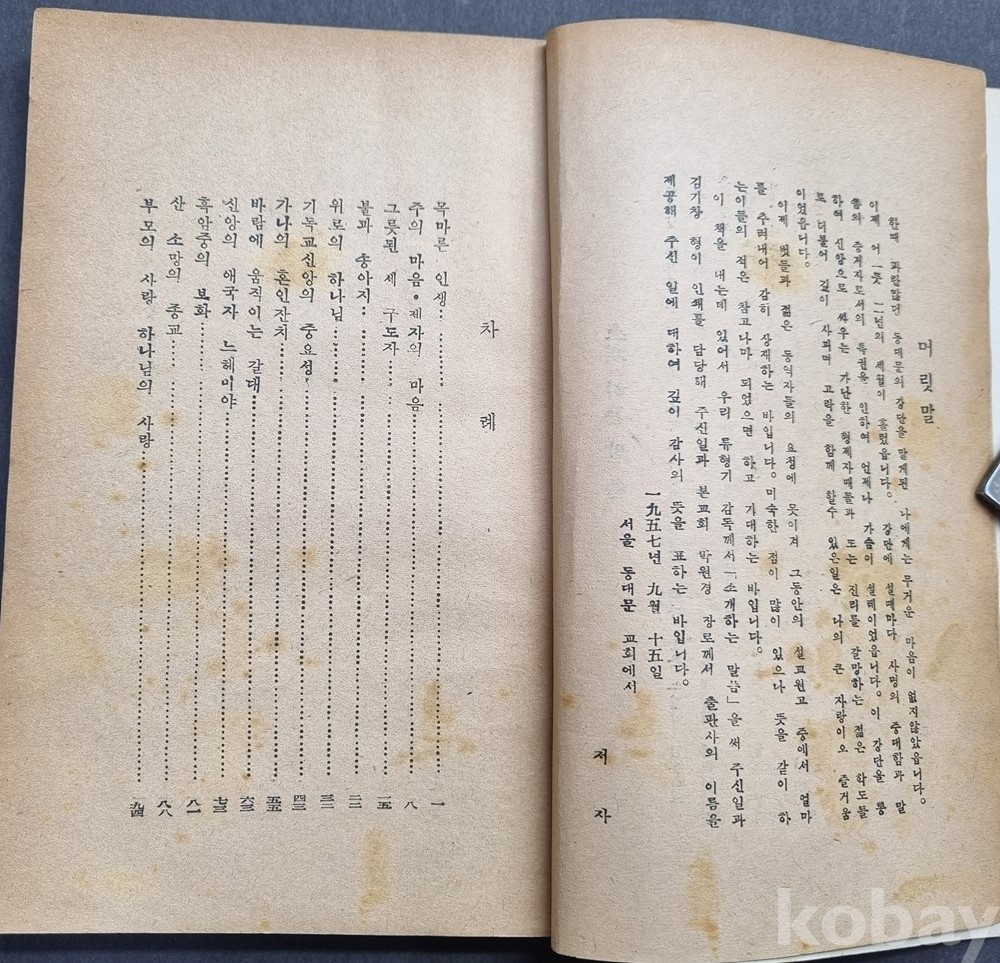 머릿말
한때 파란많던 동대문의 강단을 맡게된 나에게는 무거운 마음이 없지않았읍니다。
이제 어一릇 二년의 세월이 흘렀읍니다。 강단에 설때마다 사명의 중대함과 말
씀의 증거자로서의 특권을 인하여 언제나 가슴이 설레이었읍니다。이 강단을 통
하여 신앙으로 싸우는 가난한 형제자매들과 또는 진리를 갈망하는 젊은 학도들
로 더불어 깊이 사괴며 고락을 함께 할수 있은일은 나의 큰 자랑이오 즐거움
이었읍니다。
이제 벗들과 젊은 동역자들의 요청에 못이겨 그동안의 설교원고 중에서 얼마
를 추려내어 감히 상재하는 바입니다。미숙한 점이 많이 있으나 뜻을 같이 하
는이들의 적은 참고나마 되었으면 하고 기대하는 바입니다。
이 책을 내는데 있어서 우리 류형기 감독께서「소개하는 말씀」을 써 주신일과
김기창 형이 인쇄를 담당해 주신일과 본교회 박원경 장로께서 출판사의 이름을
제공해 주신 일에 대하여 깊이 감사의 뜻을 표하는 바입니다。
一九五七년 九월 十五일
서울 동대문 교회에서
저자
차례
목마른 인생 一
주의 마음・제자의 마음 八
그릇된 세 구도자 一五
불과 송아지 二二
위로의 하나님 三二
기독교신앙의 중요성 四三
가나의 혼인잔치 五五
바람에 움직이는 갈대 六三
신앙의 애국자 느헤미야 七三
흑암중의 보화 八一
산 소망의 종교 八八
부모의 사랑 하나님의 사랑 九四
kobay